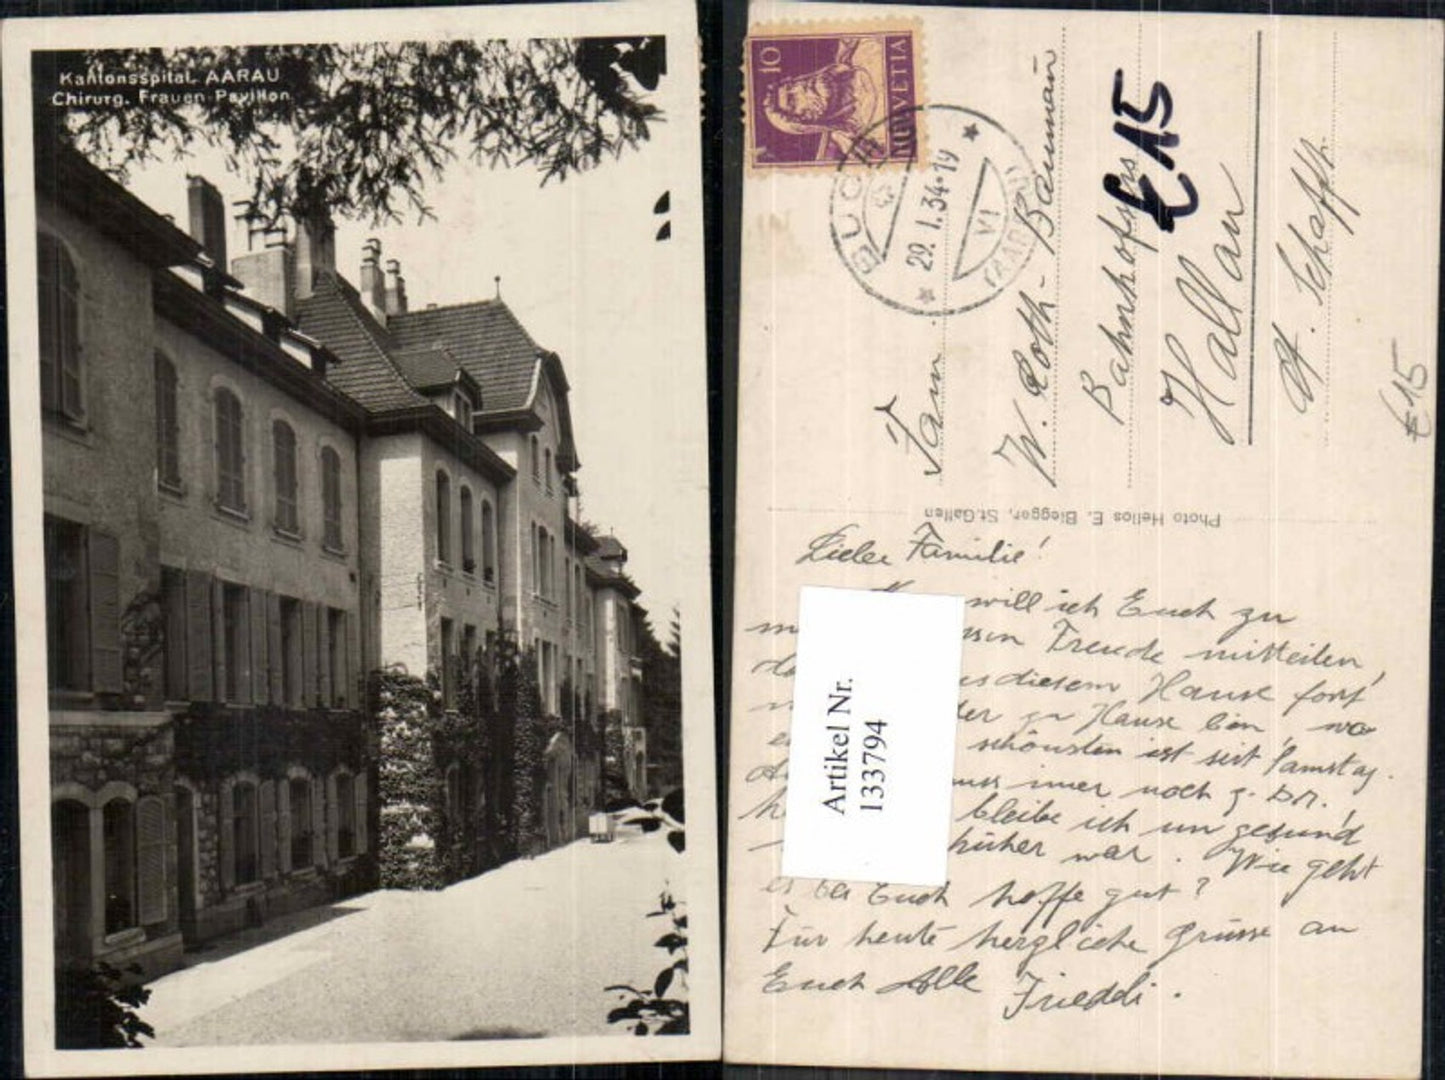 Kantonsspital AARAU
Chirurg. Frauen-Pavillon
10
HELVETIA
BUCHS
29.1.34-19
VI
(AARGAU)
Fam.
W. Roth-Baumann
Bahnhofstrs
Hallau
Kt. Schaffh.
€15
€15
Photo Helios E. Biegger, St.Gallen
Liebe Familie!
will ich Euch zu
Freude mitteilen,
diesem Hause fort
zu Hause bin, wo
schönsten ist seit Samstag.
muss imer noch z. Dr.
bleibe ich un gesund
früher war. Wie geht
es bei Euch hoffe gut?
Für heute herzliche Grüsse an
Euch Alle Frieddi.
Artikel Nr.
133794